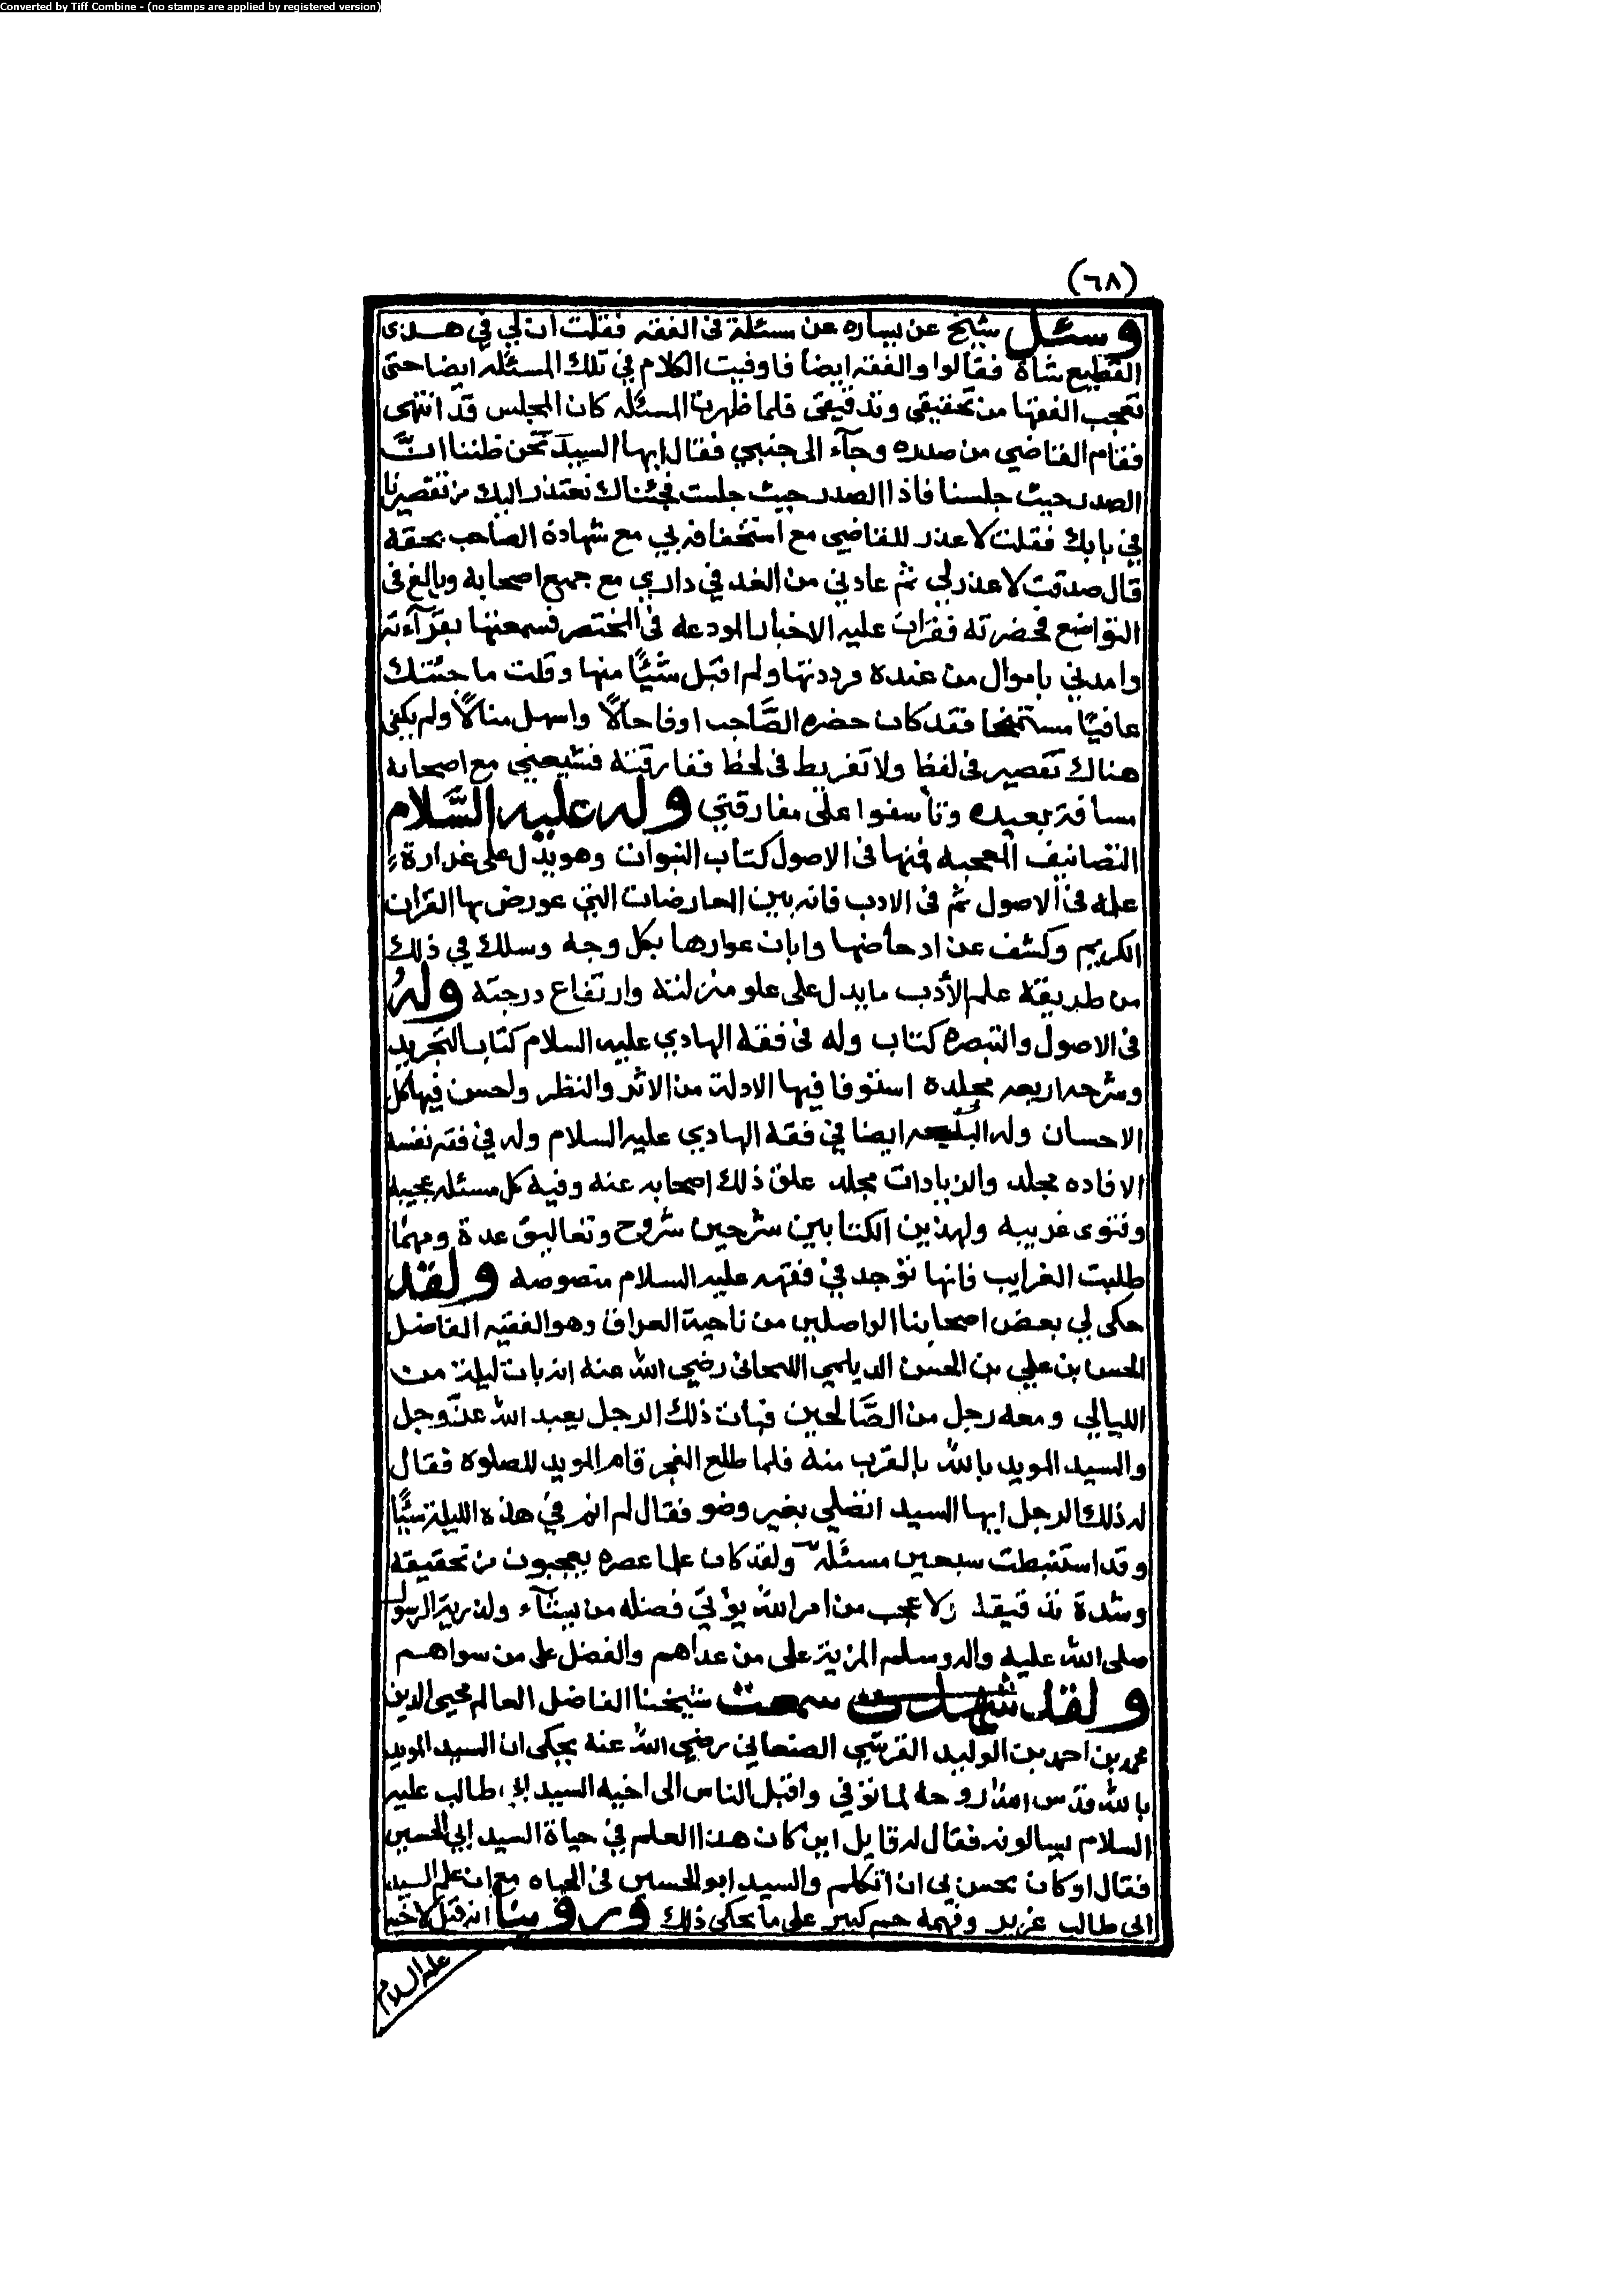 Converted by Tiff Combine - (no stamps are applied by registered version)
(٦٨)
وسئل شيخ عن يساره عن مسئلة فى الفقه فقلت ان لي في هذى
القطيع شاة فقالوا والفقه ايضا فاوفيت الكلام في تلك المسئله ايضا حتى
تعجب الفقها من تحقيقي وتدقيقى فلما ظهرت المسئله كان المجلس قد انتهى
فقام القاضي من صدره وجآء الى جنبي فقال ايها السيد نحن ظننا انَّ
الصدر حيث جلسنا فاذا الصدر حيث جلست فجئناك نعتذر اليك من تقصيرنا
في بابك فقلت لا عذر للقاضي مع استخفافه بي مع شهادة الصاحب بحقه
قال صدقت لا عذر لي ثم عادني من الغد في داري مع جميع اصحابه وبالغ فى
التواضع فحضرته فقرات عليه الاخبار المودعه فى المختصر فسمعتها بقرآءته
وامدني باموال من عنده فرددتها ولم اقبل شيًا منها وقلت ما جئتك
عافيًا مستمنحا فقد كان حضره الصَّاحب اوفا حالًا واسهل منالًا ولم يكن
هناك تقصير فى لفظ ولا تفريط فى لحظ ففارقته فشيعني مع اصحابه
مسافة بعيده وتأسفوا على مفارقتي وله عليه السَّلام
التصانيف المعجبه فمنها فى الاصول كتاب النبوات وهو يدل على غزارة
علمه فى الاصول ثم فى الادب فانه بين المعارضات التي عورض بها القران
الكريم وكشف عن ادحاضها وابان عوارها بكل وجه وسلك في ذلك
من طريقة علم الأدب ما يدل على علو منزلته وارتفاع درجته ولهُ
فى الاصول والتبصره كتاب وله فى فقه الهادي عليه السلام كتاب التجريد
وشرحه اربعه مجلده استوفا فيها الادلة من الاثر والنظر واحسن فيها كل
الاحسان وله البلغه ايضا في فقه الهادي عليه السلام وله في فقه نفسه
الافاده مجلد والزيادات مجلد علق ذلك اصحابه عنه وفيه كل مسئله عجيبه
وفتوى غريبه ولهذين الكتابين شرحين شروح وتعاليق عدة ومهما
طلبت الغرايب فانها توجد في فقهه عليه السلام منصوصه ولقد
حكى لي بعض اصحابنا الواصلين من ناحية العراق وهو الفقيه الفاضل
الحسن بن علي بن الحسن الديلمي رضي الله عنه انه بات ليلة من
الليالي ومعه رجل من الصَّالحين فبات ذلك الرجل يعبد الله عزّ وجل
والسيد المويد بالله بالقرب منه فلما طلع الفجر قام المويد للصلوة فقال
له ذلك الرجل ايها السيد اتصلي بغير وضو فقال لم انم في هذه الليلة شيًا
وقد استنبطت سبعين مسئله ولقد كان علما عصره يعجبون من تحقيقه
وشدة تدقيقه ولا عجب من امر الله يؤتي فضله من يشآء ولذرية الرسول
صلى الله عليه واله وسلم المزية على من عداهم والفضل على من سواهم
ولقد شهدت سمعت شيخنا الفاضل العالم محيي الدين
محمد بن احمد بن الوليد القرشي الصنعاني رضي الله عنه يحكى ان السيد المويد
بالله قدس الله روحه لما توفي واقبل الناس الى اخيه السيد ابى طالب عليه
السلام يسالونه فقال له قايل اين كان هذا العلم في حياة السيد ابي الحسين
فقال او كان يحسن بى ان اتكلم والسيد ابو الحسين فى الحياه مع ان علم السيد
ابى طالب غزير وفهمه جم كبير على ما يحكى ذلك وروينا انه قيل لاخيه
عليه السلام